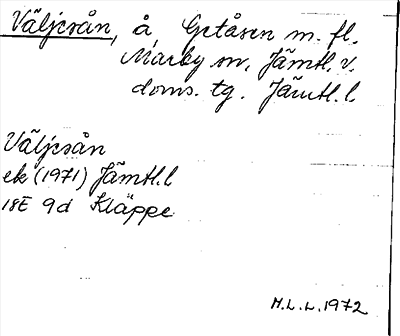 Väljesån, å, Getåsen m. fl.
Marby sn, Jämtl. v.
doms. tg. Jämtl. l.
Väljesån
ek (1971) Jämtl. l
18E 9d Kläppe
H.L.L. 1972